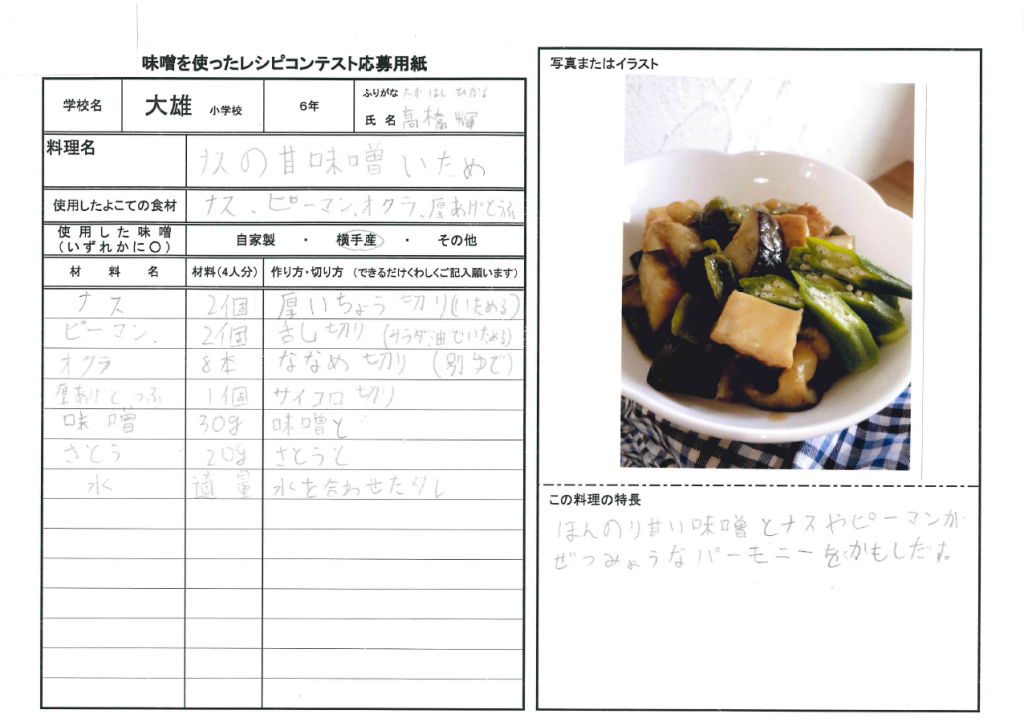 味噌を使ったレシピコンテスト応募用紙
学校名 大雄 小学校 6年
ふりがな たかはし ひかる
氏名 高橋 輝
料理名 ナスの甘味噌いため
使用したよこての食材 ナス、ピーマン、オクラ、厚あげとうふ
使用した味噌
(いずれかに○) 自家製 ・ 横手産 ・ その他
材料名 材料(4人分) 作り方・切り方 (できるだけくわしくご記入願います)
ナス 2個 厚いちょう切り(いためる)
ピーマン. 2個 切り (サラダ油でいためる)
オクラ 8本 ななめ切り (別ゆで)
厚あげとうふ 1個 サイコロ切り
味噌 30g 味噌と
さとう 20g さとうと
水 適量 水を合わせたりし
写真またはイラスト
この料理の特長
ほんのり甘い味噌とナスやピーマンが
ぜつみょうなハーモニーをかもしだす。